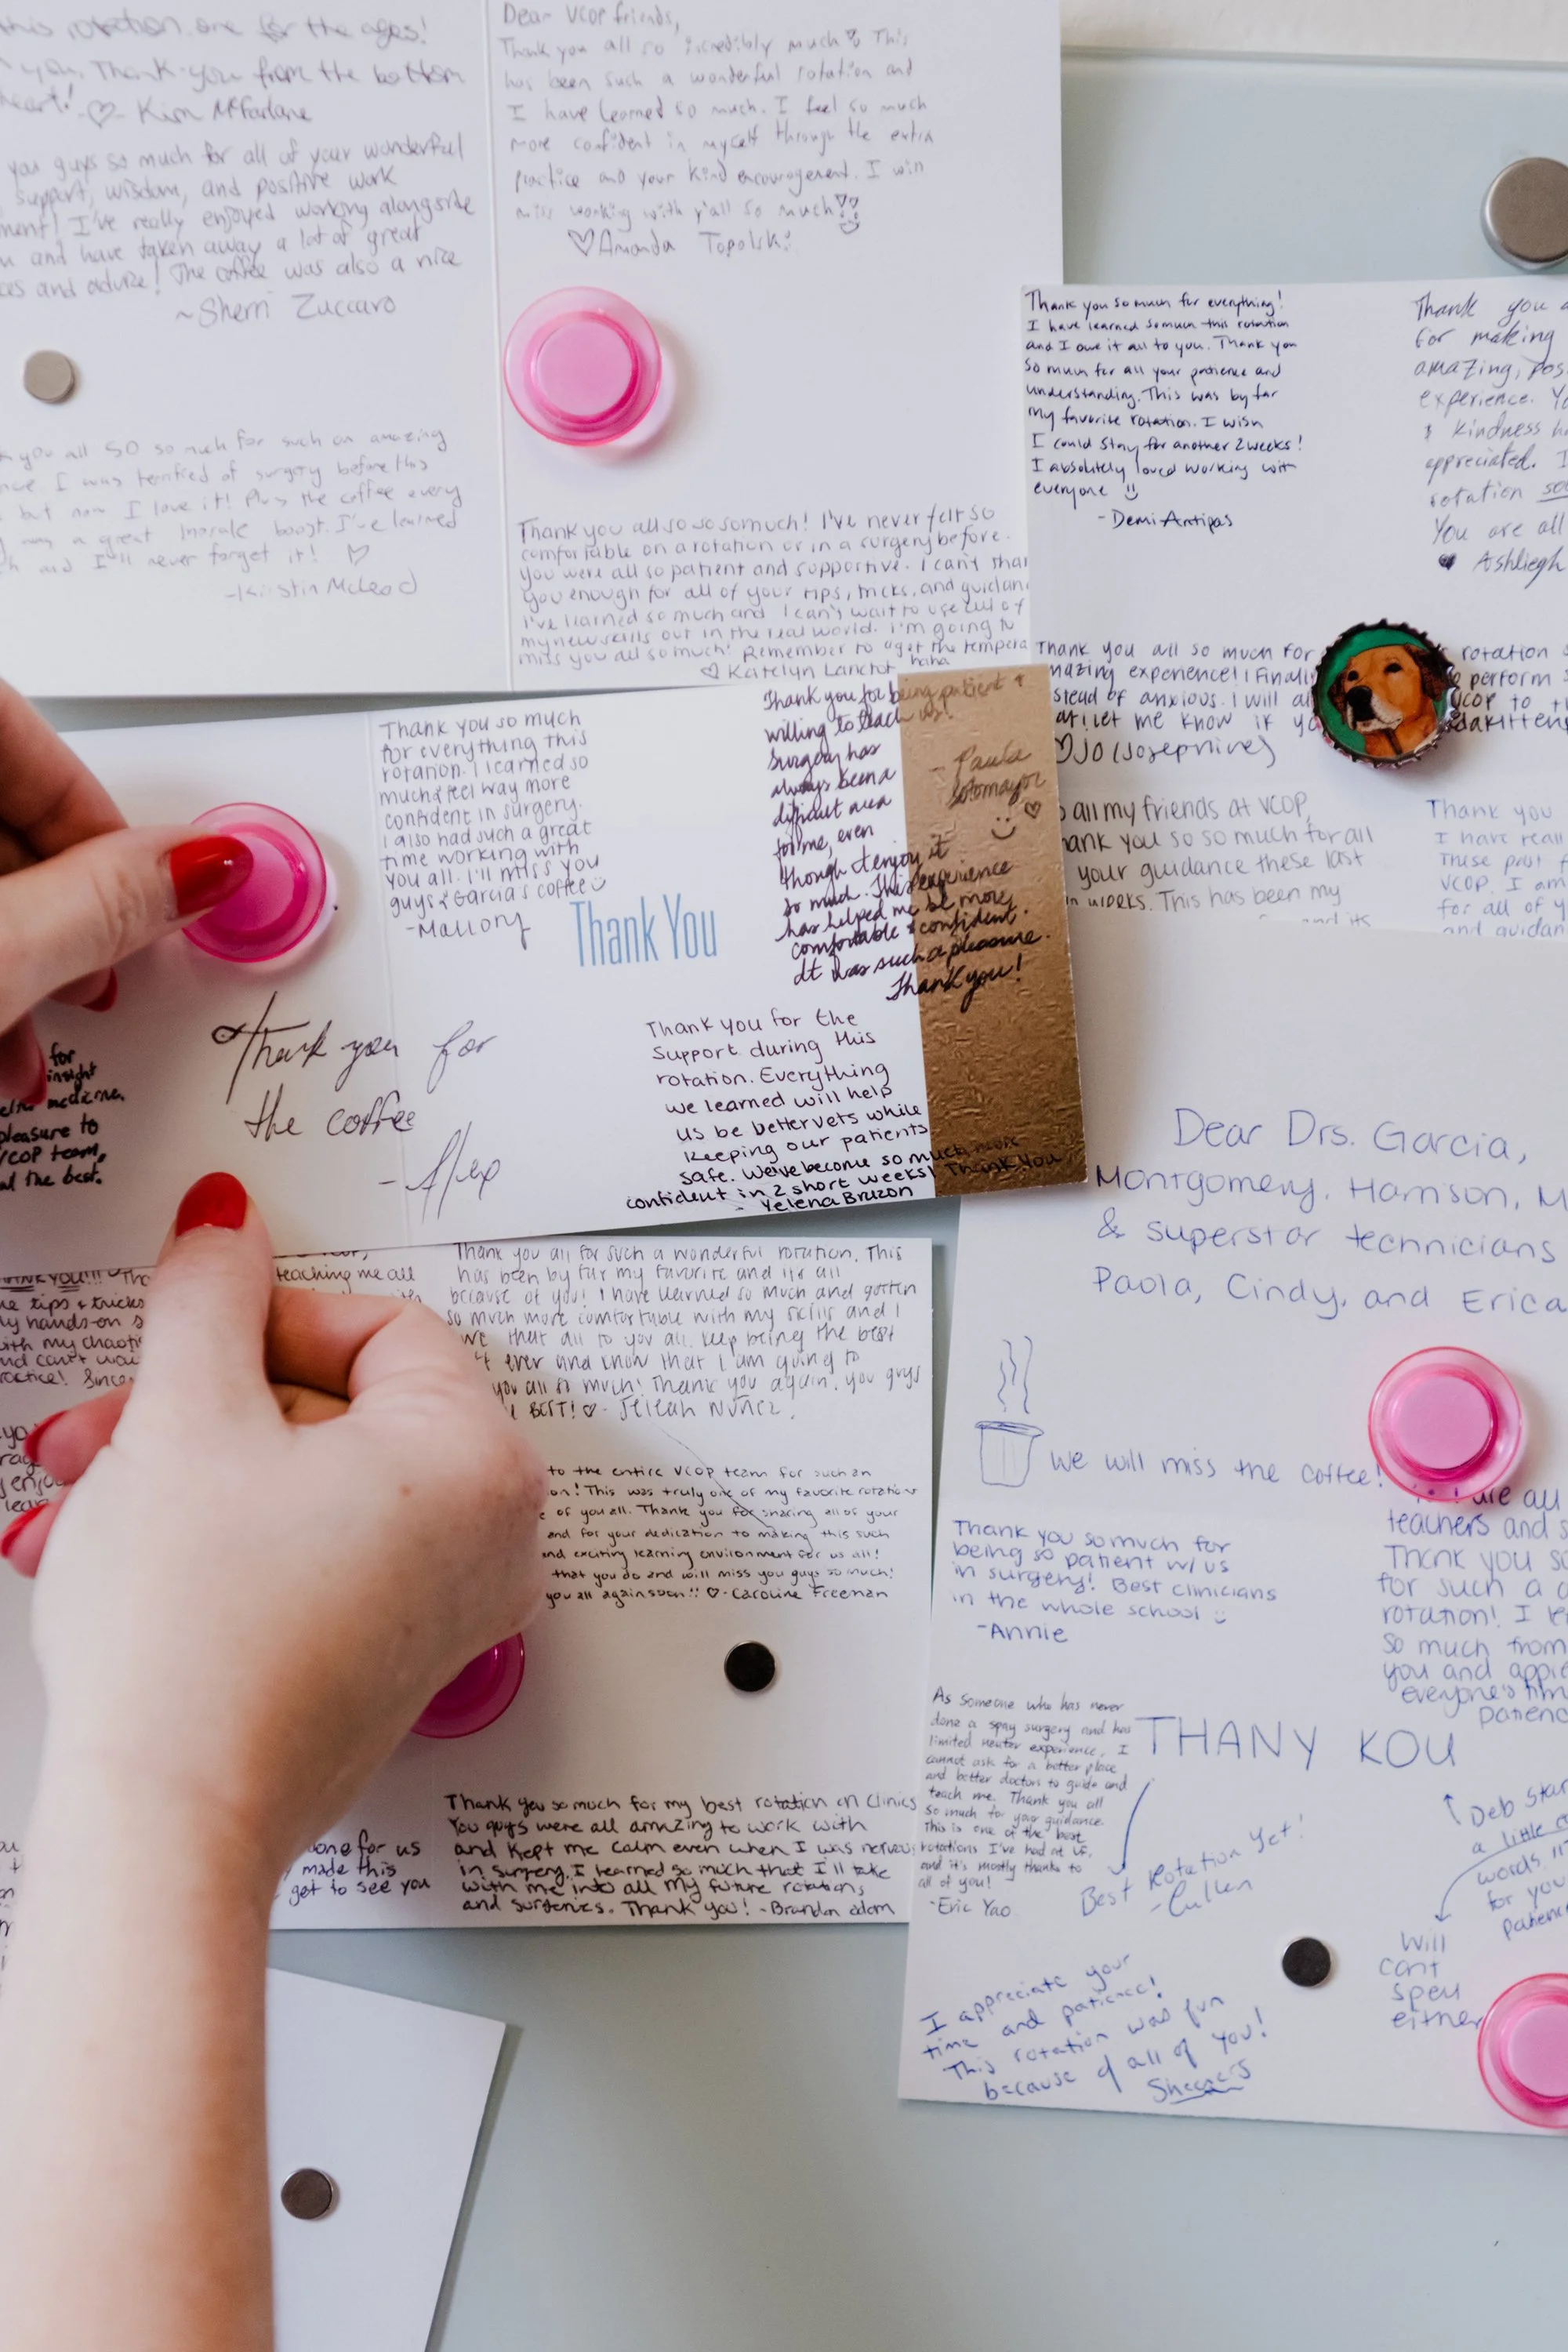 this rotation one for the ages!
you. Thank you from the bottom
heart! ♡- Kim McFarlane
you guys so much for all of your wonderful
support, wisdom, and positive work
ment! I've really enjoyed working alongside
and have taken away a lot of great
ces and advice! The coffee was also a nice
~Sherri Zuccaro
you all SO so much for such an amazing
nce. I was terrified of surgery before this
but now I love it! Plus the coffee every
was a great morale boost. I've learned
and I'll never forget it! ♡
-Kirstin McLeod
Dear VCOP friends,
Thank you all so incredibly much! This
has been such a wonderful rotation and
I have learned so much. I feel so much
more confident in myself through the extra
practice and your kind encouragement. I will
miss working with y'all so much!!
♡Amanda Topolski
Thank you all so so so much! I've never felt so
comfortable on a rotation or in a surgery before.
you were all so patient and supportive. I can't than
you enough for all of your tips, tricks, and guidan
I've learned so much and I can't wait to use all of
my new skills out in the real world. I'm going to
miss you all so much! Remember to "get the tempera
haha
♡ Katelyn Lanctot
Thank you so much for everything!
I have learned so much this rotation
and I owe it all to you. Thank you
so much for all your patience and
understanding. This was by far
my favorite rotation. I wish
I could stay for another 2 weeks!
I absolutely loved working with
everyone
-Demi Antipas
Thank you a
for making
amazing, pos
experience. Yo
& kindness h
appreciated. I
rotation so
You are all
♥ Ashliegh
Thank you all so much for
rotation
mazing experience! I finall
perform s
stead of anxious. I will al
VCOP to th
at! Let me know if yo
dakitten
♡JO (Josephine)
all my friends at VCOP,
hank you so so much for all
your guidance these last
weeks. This has been my
and its
Thank you
I have reall
These past f
VCOP. I am
for all of y
and guidan
Thank you so much
for everything this
rotation. I learned so
much & feel way more
confident in surgery.
I also had such a great
time working with
you all. I'll miss you
guys & Garcia's coffee
-Mallory
Thank You
Thank you for being patient &
willing to teach us!
Surgery has
always been a
difficult area
for me, even
though I enjoy it
so much. This experience
has helped me be more
comfortable & confident.
It was such a pleasure.
Thank you!
- Paula
Sotomayor
♡
for
insight
medicine.
pleasure to
VCOP team,
the best.
Thank you for
the coffee
- Alex
Thank you for the
support during this
rotation. Everything
we learned will help
us be better vets while
keeping our patients
safe. We've become so much more
confident in 2 short weeks! Thank you
- Yelena Bruzon
THANK YOU!!!
tips + tricks
my hands-on s
with my chaoti
and can't wai
practice! Since
teaching me all
Thank you all for such a wonderful rotation. This
has been by far my favorite and its all
because of you! I have learned so much and gotten
so much more comfortable with my skills and I
that all to you all. Keep being the best
ever and know that I am going to
you all so much! Thank you again, you guys
BEST! ♡- Jeileah Nuñez.
to the entire VCOP team for such an
on! This was truly one of my favorite rotations
of you all. Thank you for sharing all of your
and for your dedication to making this such
and exciting learning environment for us all!
that you do and will miss you guys so much!
you all again soon!! ♡-Caroline Freeman
done for us
made this
get to see you
Thank you so much for my best rotation on clinics
You guys were all amazing to work with
and kept me calm even when I was nervous
in surgery. I learned so much that I'll take
with me into all my future rotations
and surgeries. Thank you! -Brandon edom
Dear Drs. Garcia,
Montgomery, Harrison, M
& superstar technicians
Paola, Cindy, and Erica
We will miss the coffee!
are all
teachers and s
Thank you so
for such a
rotation! I le
so much from
you and appre
everyone's tim
patienc
Thank you so much for
being so patient w/ us
in surgery! Best clinicians
in the whole school
-Annie
As someone who has never
done a spay surgery and has
limited neuter experience, I
cannot ask for a better place
and better doctors to guide and
teach me. Thank you all
so much for your guidance.
This is one of the best
rotations I've had at UF,
and it's mostly thanks to
all of you!
-Eric Yao
THANY KOU
Best rotation yet!
-Cullen
Deb star
a little
words
for you
patienc
Will
cant
spell
either
I appreciate your
time and patience!
This rotation was fun
because of all of you!